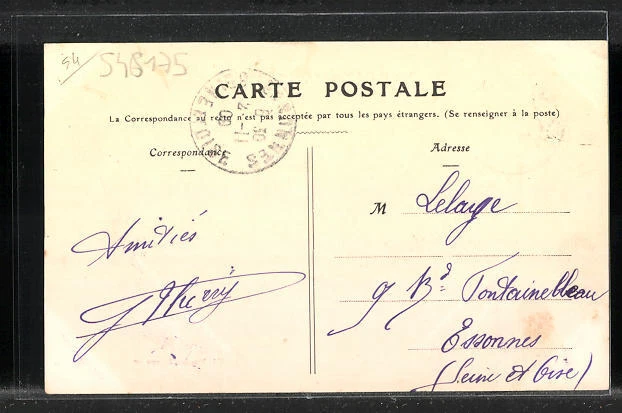 94
548175
CARTE POSTALE
La Correspondance au recto n'est pas acceptée par tous les pays étrangers. (Se renseigner à la poste)
Correspondance
Adresse
M Lelarge
Amitiés
Thierry
9 Bd Fontainebleau
Essonnes
(Seine et Oise)